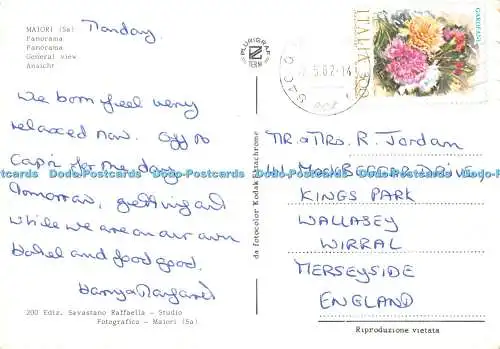 MAIORI (Sa)
Panorama
Panorama
General view
Ansicht
Monday.
We both feel very
relaxed now. Off to
Capri for the day
tomorrow, getting out
while we are on our own
Hotel and food good.
Harry & Margaret
200 Ediz. Savastano Raffaella - Studio
Fotografico - Maiori (Sa)
PLURIGRAF
TERNI
da fotocolor Kodak Ektachrome
ITALIA
GAROFANO
MR & MRS. R. Jordan
KINGS PARK
WALLASEY
WIRRAL
MERSEYSIDE
ENGLAND
Riproduzione vietata
Docto-Postcards Docto-Postcards Docto-Postcards Docto-Postcards